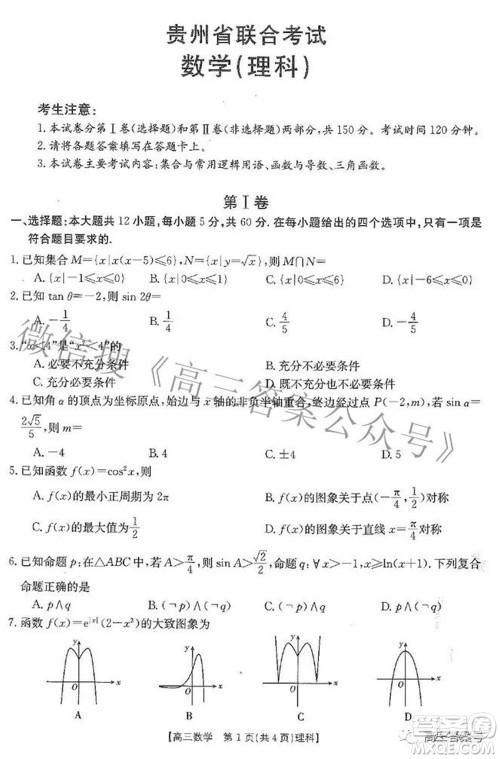 贵州省联合考试
数学(理科)
考生注意:
1.本试卷分第Ⅰ卷(选择题)和第Ⅱ卷(非选择题)两部分,共150分。考试时间120分钟。
2.请将各题答案填写在答题卡上。
3.本试卷主要考试内容:集合与常用逻辑用语、函数与导数、三角函数。
第Ⅰ卷
一、选择题:本大题共12小题,每小题5分,共60分.在每小题给出的四个选项中,只有一项是
符合题目要求的.
1.已知集合M={x|x(x-5)≤6},N={x|y=√x},则M∩N=
A.{x|-1≤x≤0} B.{x|0≤x≤6} C.{x|-1≤x≤6} D.{x|-6≤x≤0}
2.已知tan θ=-2,则sin 2θ=
A.-1/4 B.1/4 C.4/5 D.-4/5
4”是“x²<4”的
A.必要不充分条件 B.充分不必要条件
C.充分必要条件 D.既不充分也不必要条件
4.已知角α的顶点为坐标原点,始边与x轴的非负半轴重合,终边经过点P(-2,m),若sin α=
2√5/5,则m=
A.-4 B.4 C.±4 D.5
5.已知函数f(x)=cos²x,则
A.f(x)的最小正周期为2π B.f(x)的图象关于点(-π/4,1/2)对称
C.f(x)的最大值为1/2 D.f(x)的图象关于直线x=π/4对称
6.已知命题p:在△ABC中,若A>π/4,则sin A>√2/2,命题q:∀x>-1,x≥ln(x+1).下列复合
命题正确的是
A.p∧q B.(¬p)∧(¬q) C.p∧(¬q) D.(¬p)∧q
7.函数f(x)=e^|x|(2-x²)的大致图象为
y x y x y x y x
O O O O
A B C D
【高三数学 第1页(共4页)理科】
微信搜《高三答案公众号》
高三答案号